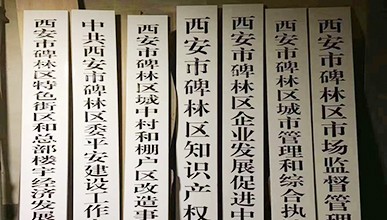 西安市碑林区特色街区和总部楼宇经济发展
中共西安市碑林区委平安建设工作
西安市碑林区城中村和棚户区改造事
西安市碑林区知识产权
西安市碑林区企业发展促进中
西安市碑林区城市管理和综合执
西安市碑林区市场监督管理